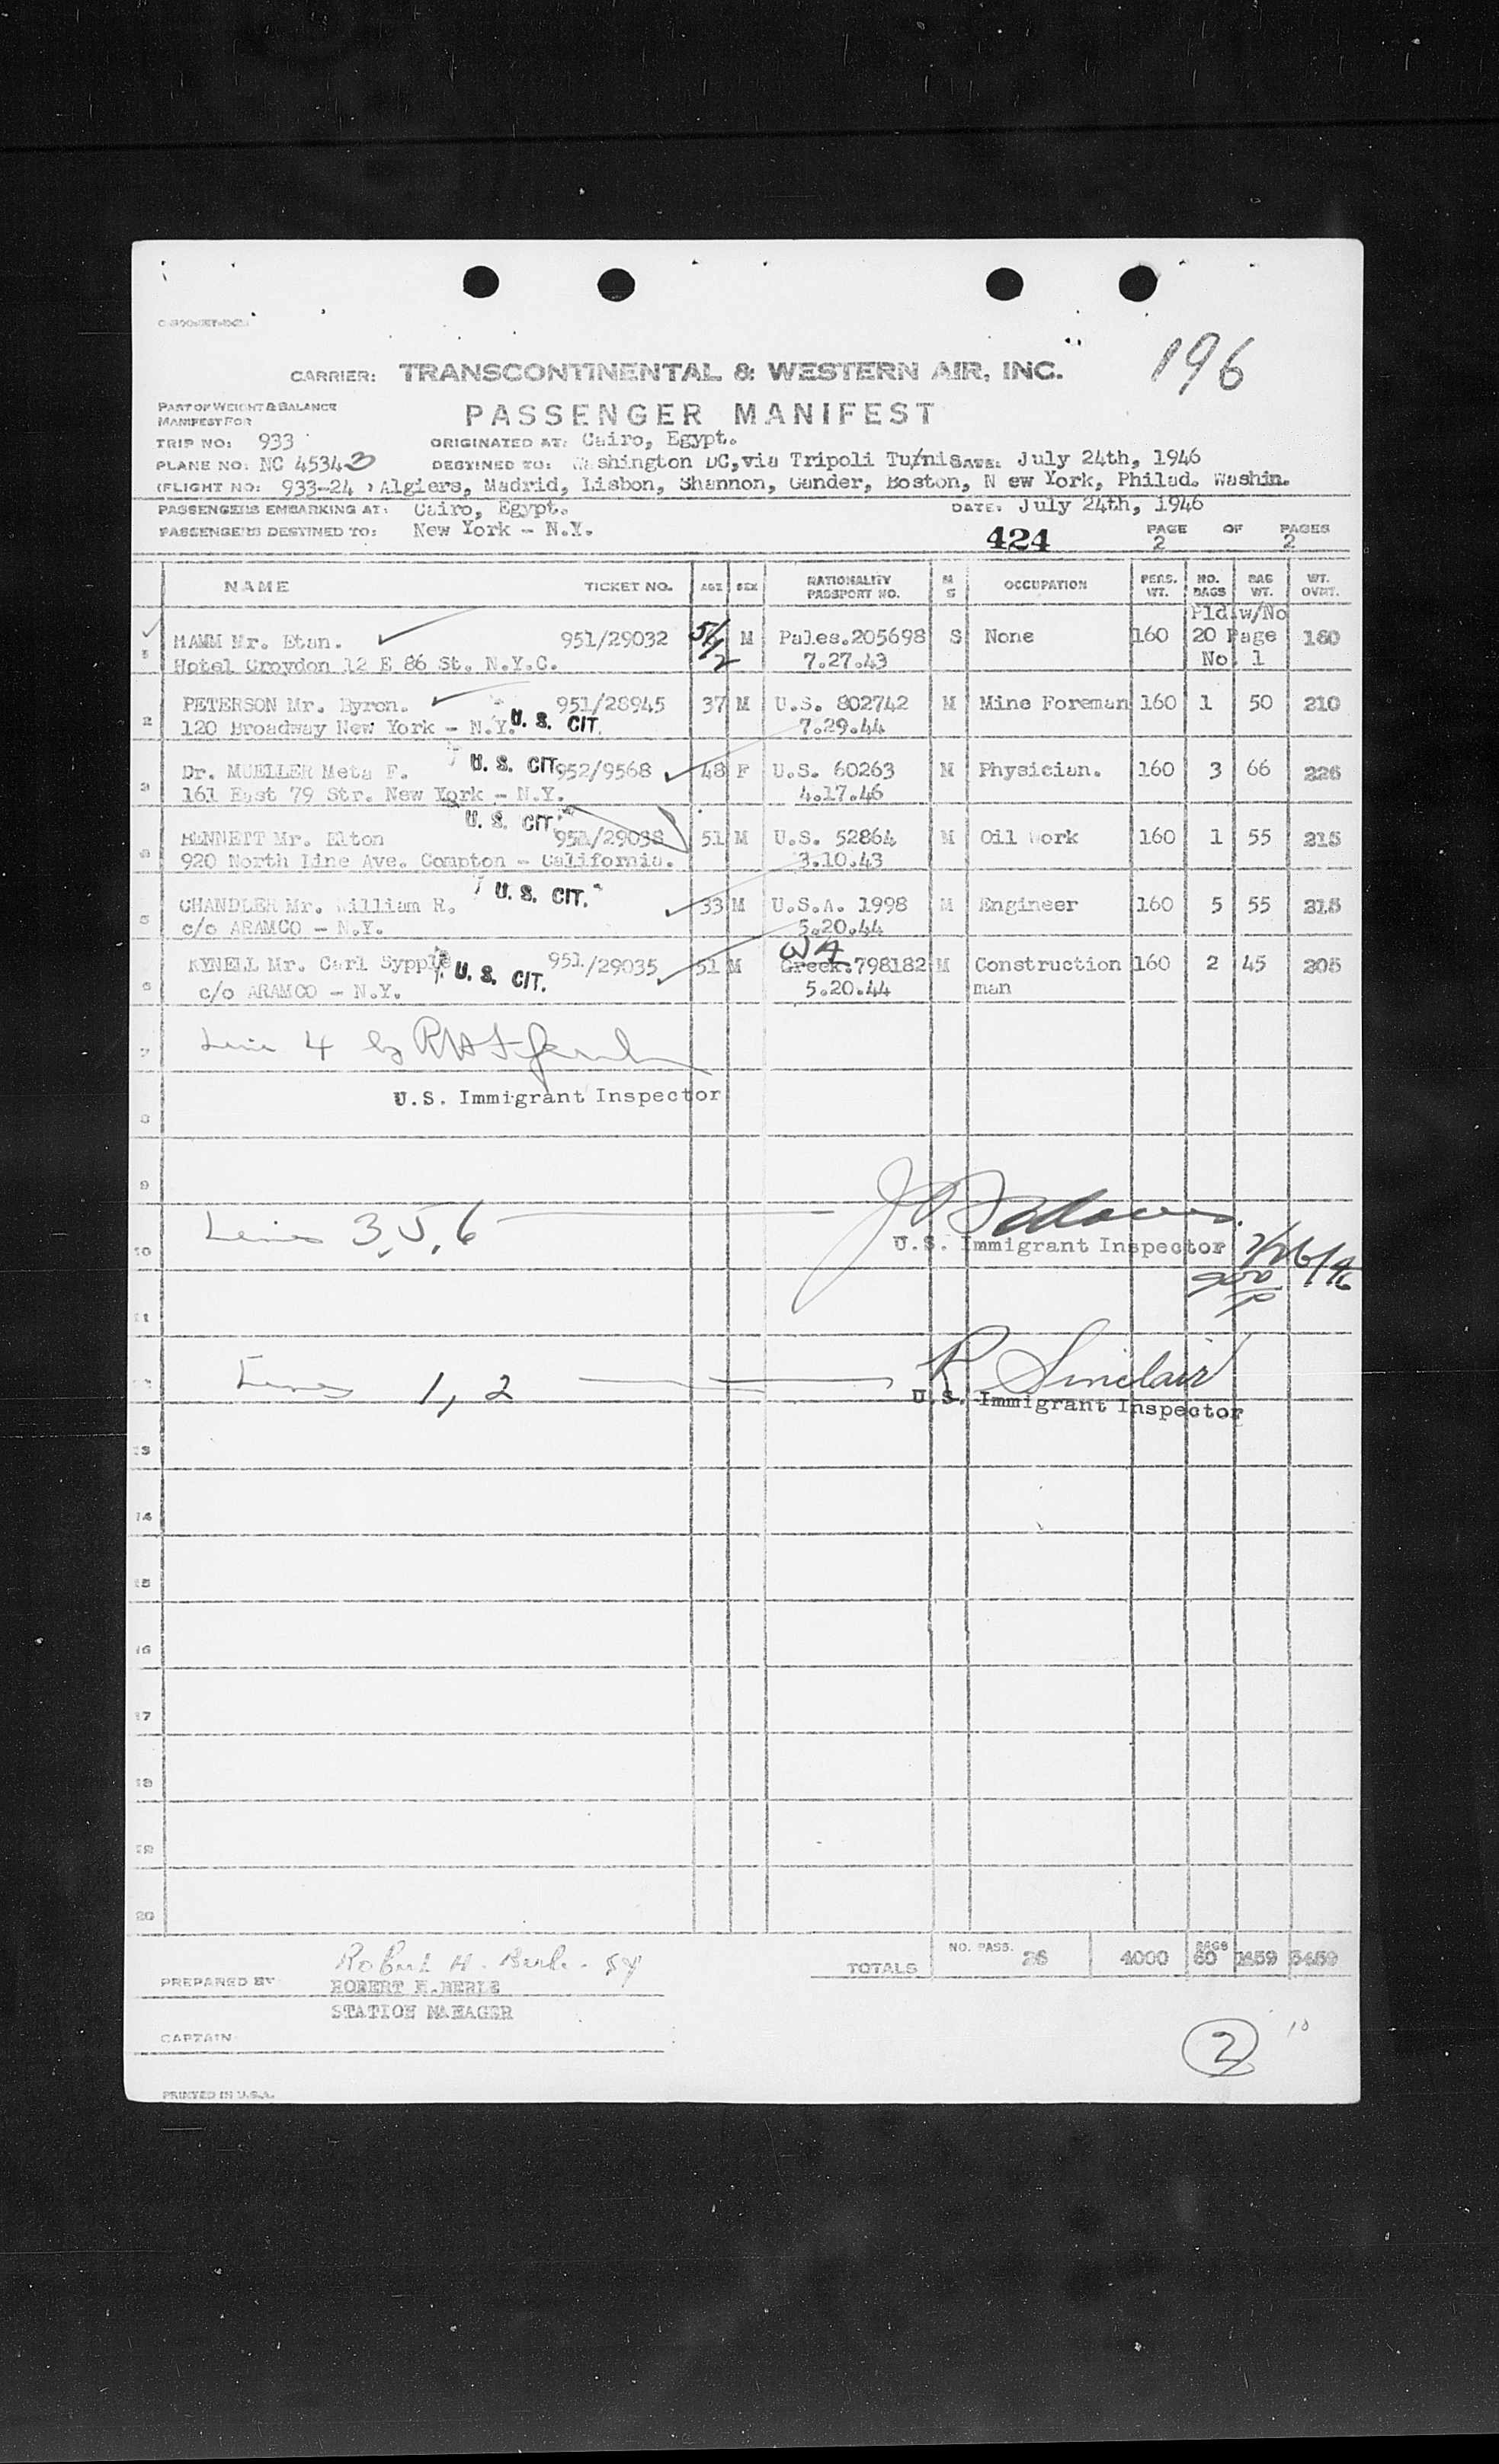 196
CARRIER: TRANSCONTINENTAL & WESTERN AIR, INC.
PART OF WEIGHT & BALANCE
MANIFEST FOR
PASSENGER MANIFEST
TRIP NO: 933 ORIGINATED AT: Cairo, Egypt.
PLANE NO: NC 45343 DESTINED TO: Washington DC, via Tripoli Tu/nis DATE: July 24th, 1946
(FLIGHT NO: 933-24 ) Algiers, Madrid, Lisbon, Shannon, Gander, Boston, N ew York, Philad. Washin.
PASSENGERS EMBARKING AT: Cairo, Egypt. DATE: July 24th, 1946
PASSENGERS DESTINED TO: New York - N.Y. 424 PAGE 2 OF PAGES 2
NAME TICKET NO. AGE SEX NATIONALITY PASSPORT NO. M S OCCUPATION PERS. WT. NO. BAGS BAG WT. WT. OVMT.
Pld. w/No
1 HAMM Mr. Etan. 951/29032 5 1/2 M Pales.205698 S None 160 20 Page 160
Hotel Croydon 12 E 86 St. N.Y.C. 7.27.43 No. 1
2 PETERSON Mr. Byron. 951/28945 37 M U.S. 802742 M Mine Foreman 160 1 50 210
120 Broadway New York - N.Y. U. S. CIT. 7.29.44
3 Dr. MUELLER Meta F. U. S. CIT. 952/9568 48 F U.S. 60263 M Physician. 160 3 66 226
161 East 79 Str. New York - N.Y. 4.17.46
U. S. CIT.
4 BENNETT Mr. Elton 951/29038 51 M U.S. 52864 M Oil Work 160 1 55 215
920 North Line Ave. Compton - California. 3.10.43
5 CHANDLER Mr. William R. U. S. CIT. 33 M U.S.A. 1998 M Engineer 160 5 55 215
c/o ARAMCO - N.Y. 5.20.44
6 KYNELL Mr. Carl Sypple U. S. CIT. 951/29035 51 M Greek:798182 M Construction 160 2 45 205
c/o ARAMCO - N.Y. 5.20.44 man
7 Line 4 by
U.S. Immigrant Inspector
8
9
Lines 3, 5, 6
10 U.S. Immigrant Inspector 7/26/46
11
12 Lines 1, 2 R Sinclair
U.S. Immigrant Inspector
13
14
15
16
17
18
19
20
TOTALS NO. PASS. 26 4000 BAGS 60 1459 5459
PREPARED BY Robert H. Berle
ROBERT H. BERLE
STATION MANAGER
CAPTAIN
2
PRINTED IN U.S.A.